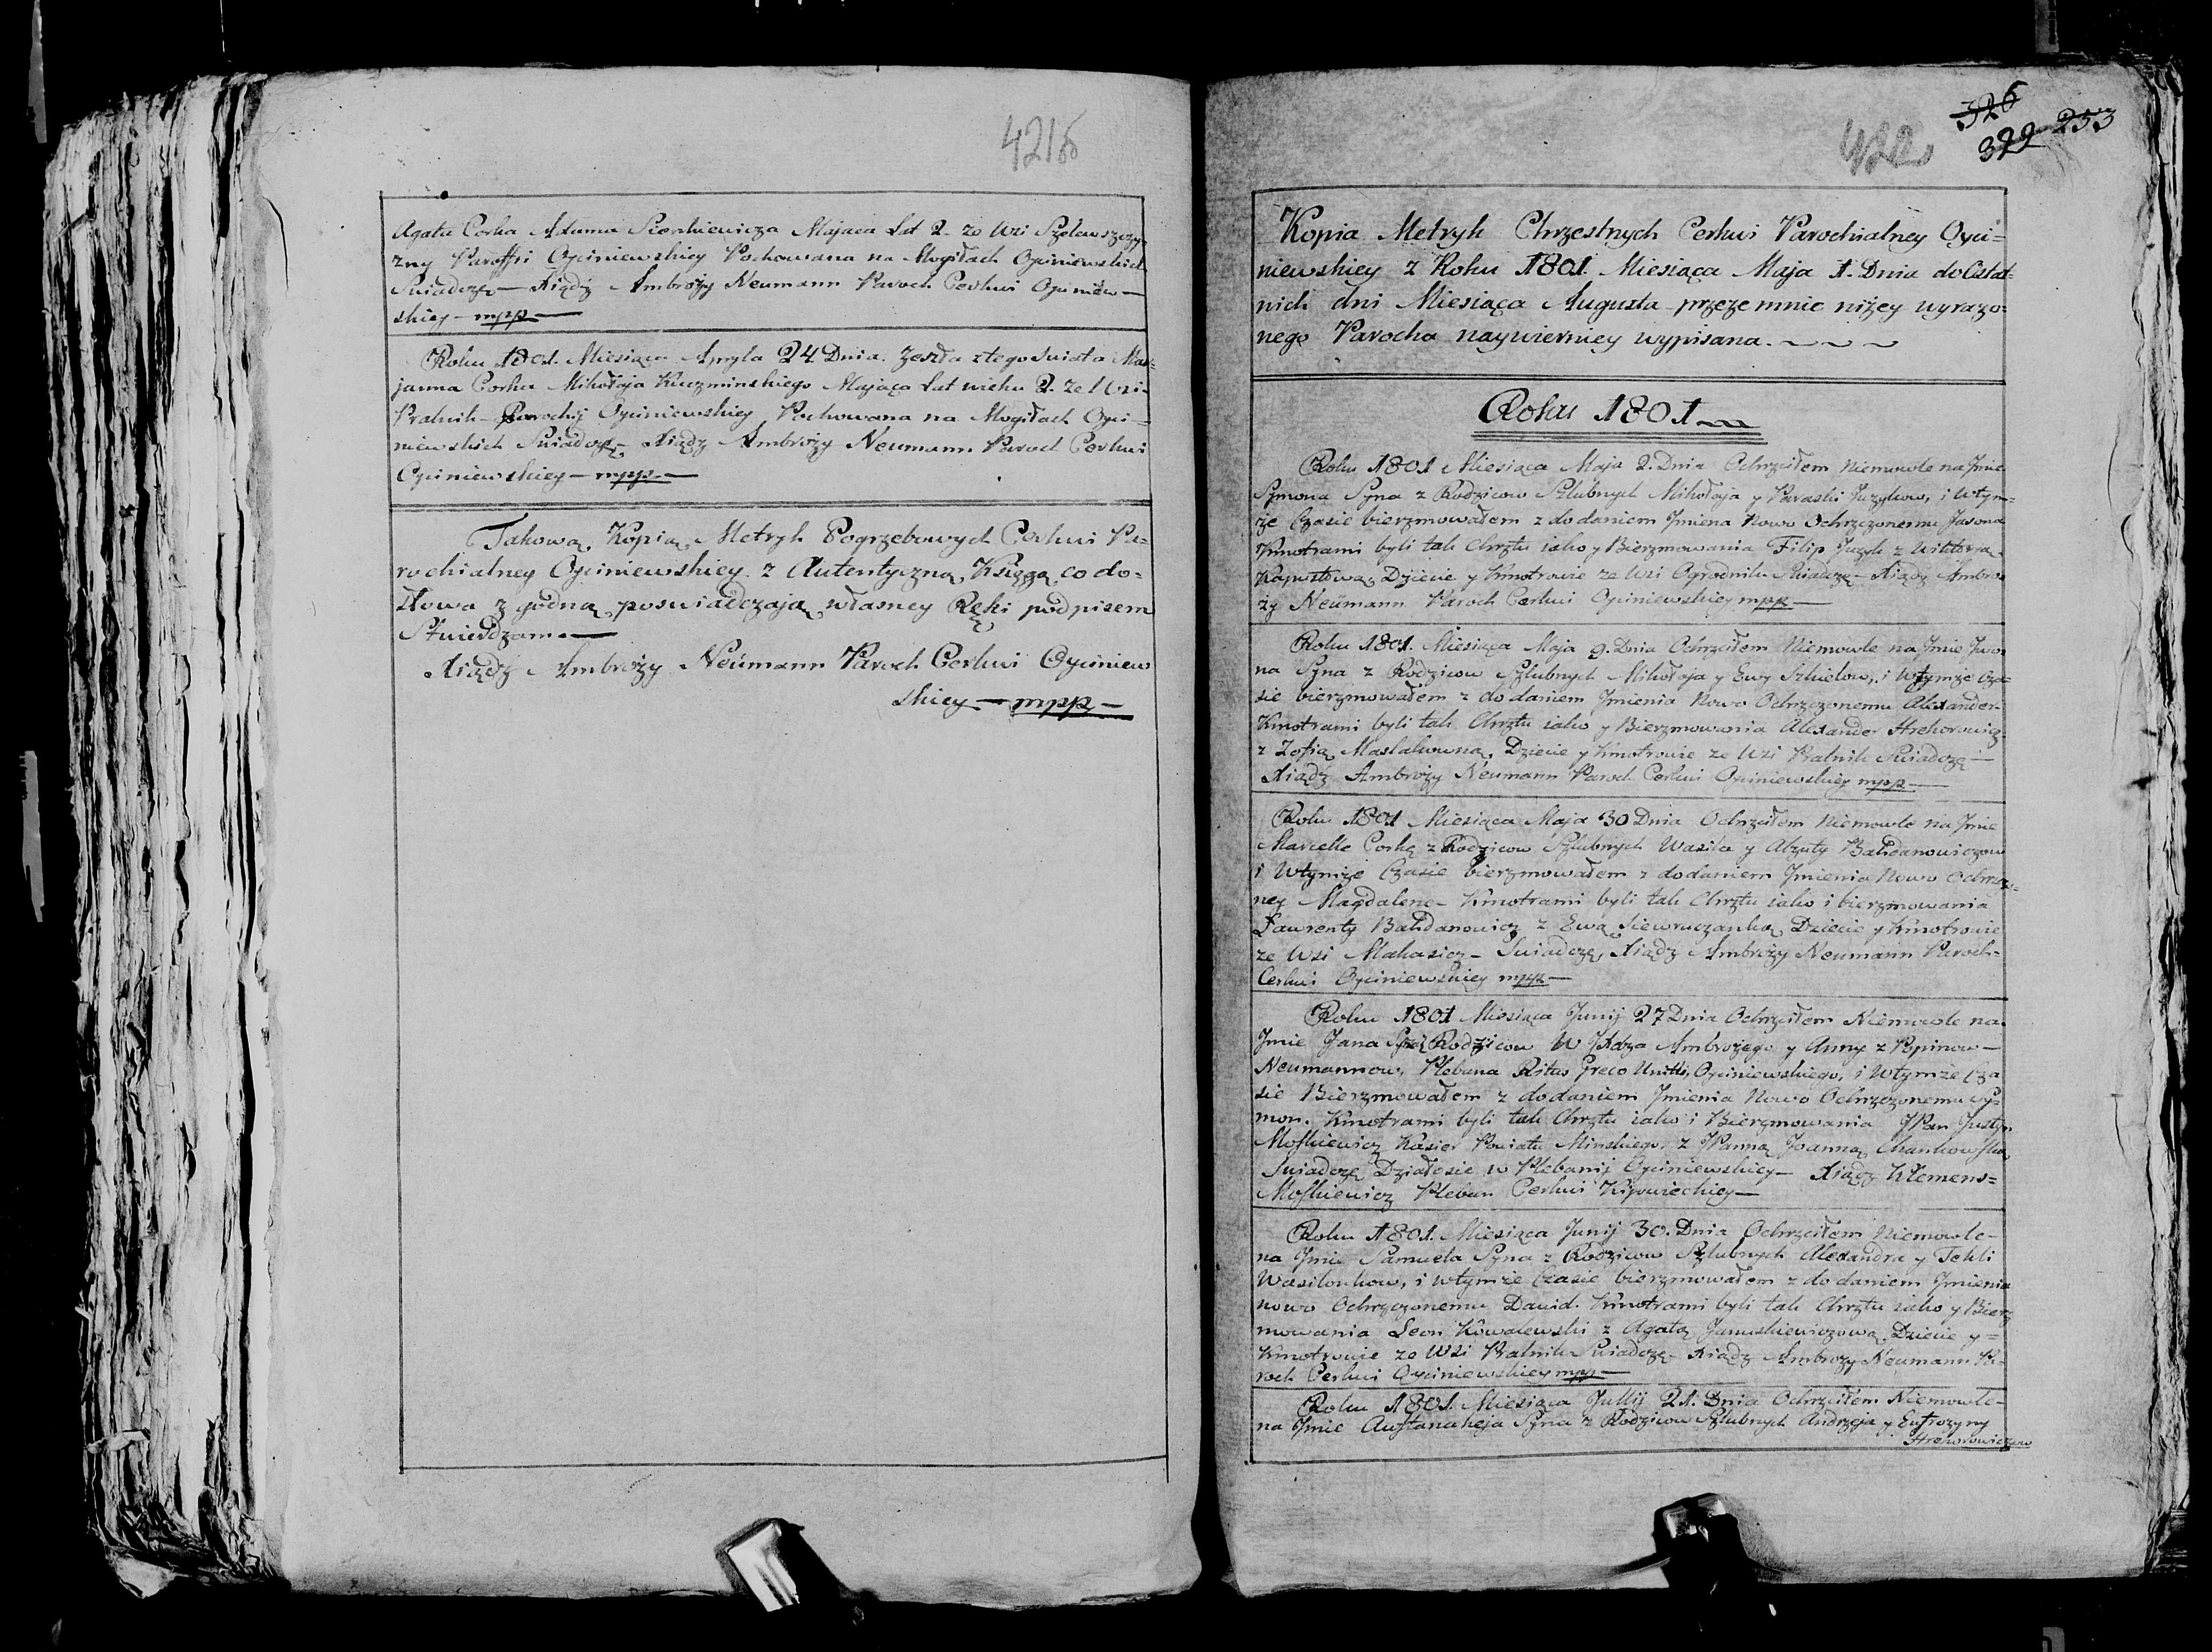 421b
Agata Corka Adama Sienkiewicza Maiąca Lat 2. ze Wsi Szelewszczy-
zny Paroffii Opiniewskiey Pochowana na Mogiłach Opiniewskich
Swiadczę — Xiądz Ambroży Neumann Paroch Cerkwi Opiniew—
skiey — mpp —
Roku 1801. Miesiąca Apryla 24 Dnia. Zeszła z tego swiata Mar-
janna Corka Mikołaja Kuczminskiego Mająca Lat wieku 2. ze Wsi-
Pralnik — Parochij Opiniewskiey Pochowana na Mogiłach Opi-
niewskich Swiadczę — Xiądz Ambroży Neumann Paroch Cerkwi
Opiniewskiey — mpp. —
Takową Kopią Metryk Pogrzebowych Cerkwi Pa-
rochialney Opiniewskiey z Autentyczną Księgą co do-
słowa zgodną poswiadczają własney Ręki podpisem
Stwierdzam. —
Xiądz Ambroży Neümann Paroch Cerkwi Opiniew
skiey — mpp —
326
422 322 253
Kopia Metryk Chrzestnych Cerkwi Parochialney Opi=
niewskiey z Roku 1801. Miesiąca Maja 1. Dnia do Ostat-
nich dni Miesiąca Augusta przezemnie niżey wyrazo=
nego Parocha naywierniey wypisana.
Roku 1801
Roku 1801 Miesiąca Maja 2. Dnia Ochrzciłem Niemowle na Jmie
Symona Syna z Rodzicow Szlubnych Mikołaja y Paraski Juzykow, i wtym-
ze Czasie bierzmowałem z dodaniem Jmiena Nowo Ochrzczonemu Jasona
Kmotrami byli tak Chrztu iako y Bierzmowania Filip Juzyk z Wiktoryą
Kapustową, Dziecie y Kmotrowie ze Wsi Ogrodnik Swiadczę — Xiądz Ambro-
ży Neümann Paroch Cerkwi Opiniewskiey mpp —
Roku 1801. Miesiąca Maja 9. Dnia Ochrzciłem Niemowle na Jmie Jwa-
na Syna z Rodzicow Szlubnych Mikołaja y Ewy Szkielow, i Wtymże Cza-
sie bierzmowałem z dodaniem Jmienia Nowo Ochrzczonemu Alexander
Kmotrami byli tak Chrztu iako y Bierzmowania Alexander Hrehorowicz
z Zofią Maslakowną. Dziecie y Kmotrowie ze Wsi Pralnik Swiadczę —
Xiądz Ambroży Neumann Paroch Cerkwi Opiniewskiey mpp —
Roku 1801 Miesiąca Maja 30 Dnia Ochrzciłem Niemowle na Jmie
Marcelle Corkę z Rodzicow Szlubnych Wasila y Alzuty Bahdanowiczow
i Wtymże Czasie bierzmowałem z dodaniem Jmienia Nowo Ochrzczo-
ney Magdalene — Kmotrami byli tak Chrztu iako i bierzmowania
Laurenty Bahdanowicz z Ewą Siewruczanką, Dziecie y Kmotrowie
ze Wsi Makasicz — Swiadczę, Xiądz Ambroży Neumann Paroch-
Cerkwi Opiniewskiey mpp —
Roku 1801 Miesiąca Junij 27 Dnia Ochrzciłem Niemowle na
Jmie Jana Syna Rodzicow W Jxdza Ambrożego y Anny z Popinow —
Neumannow, Plebana Ritus Greco Uniti, Opiniewskiego, i Wtymże Cza
sie Bierzmowałem z dodaniem Jmienia Nowo Ochrzczonemu Sy-
mon. Kmotrami byli tak Chrztu iako i Bierzmowania JPan Justyn
Mofkiewicz Kasier Powiatu Minskiego, z JPanną Joanną Chankowfką,
Swiadczę Działosie w Plebanij Opiniewskiey — Xiądz Klemens=
Mofkiewicz Pleban Cerkwi Kijowieckiey —
Roku 1801. Miesiąca Junij 30. Dnia Ochrzciłem Niemowle-
na Jmie Samuela Syna z Rodzicow Szlubnych Alexandra y Tekli
Wasilonkow, i wtymże Czasie bierzmowałem z dodaniem Jmienia
nowo Ochrzczonemu Dawid. Kmotrami byli tak Chrztu iako y Bierz
mowania Leon Kowalewski z Agatą Januskiewiczową. Dziecie y =
Kmotrowie ze Wsi Pralnik Swiadczę — Xiądz Ambroży Neumann Pa-
roch Cerkwi Opiniewskiey mpp —
Roku 1801. Miesiąca Jullij 21. Dnia Ochrzciłem Niemowle-
na Jmie Syna z Rodzicow Szlubnych Andrzeja y Eufrozyny
Hrehorowiczow